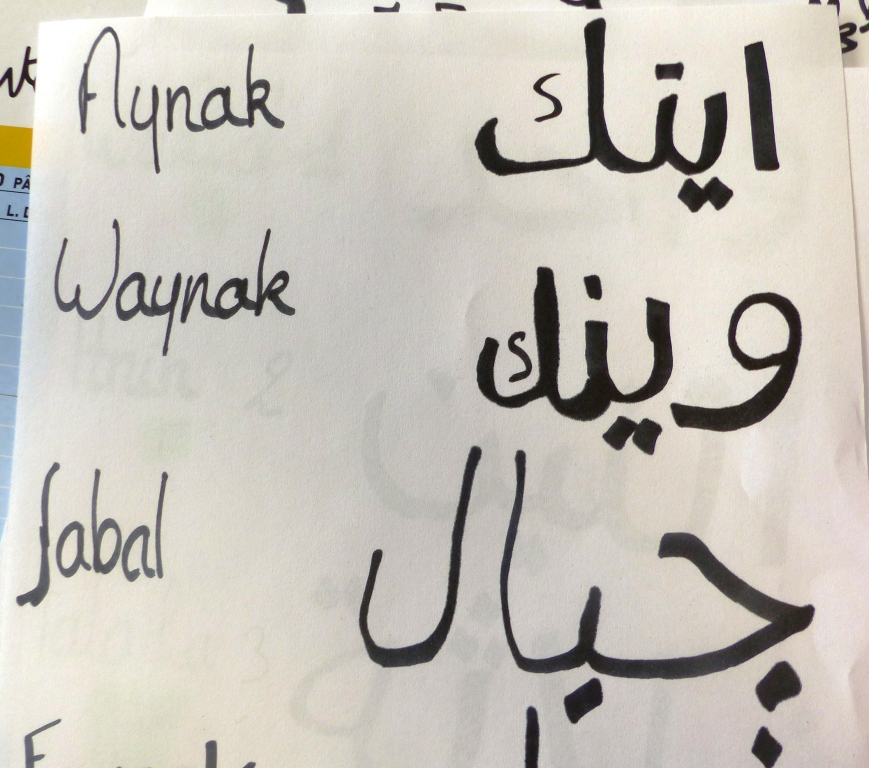 Aynak اينك
Waynak وينك
Jabal جبال